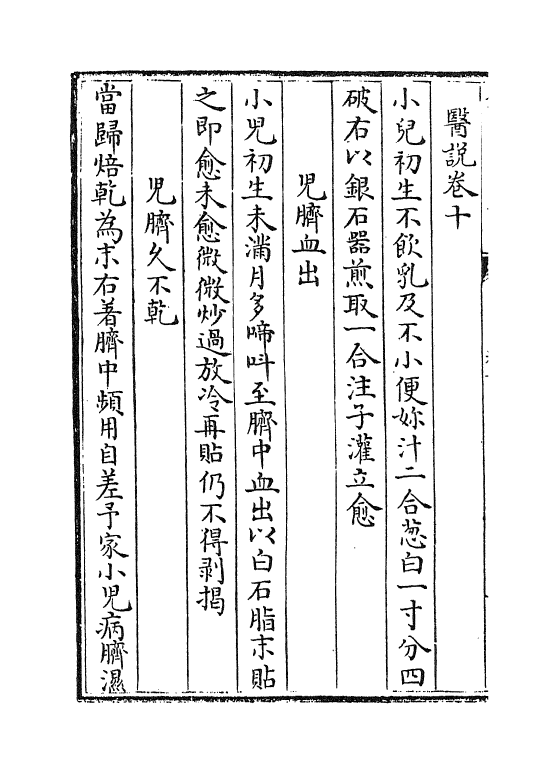 醫説卷十
小兒初生不飲乳及不小便妳汁二合葱白一寸分四
破右以銀石器煎取一合注子灌立愈
児臍血出
小児初生未滿月多啼呌至臍中血出以白石脂末貼
之即愈未愈微微炒過放冷再貼仍不得剥揭
児臍久不乾
當歸焙乾為末右着臍中頻用自差予家小児病臍濕